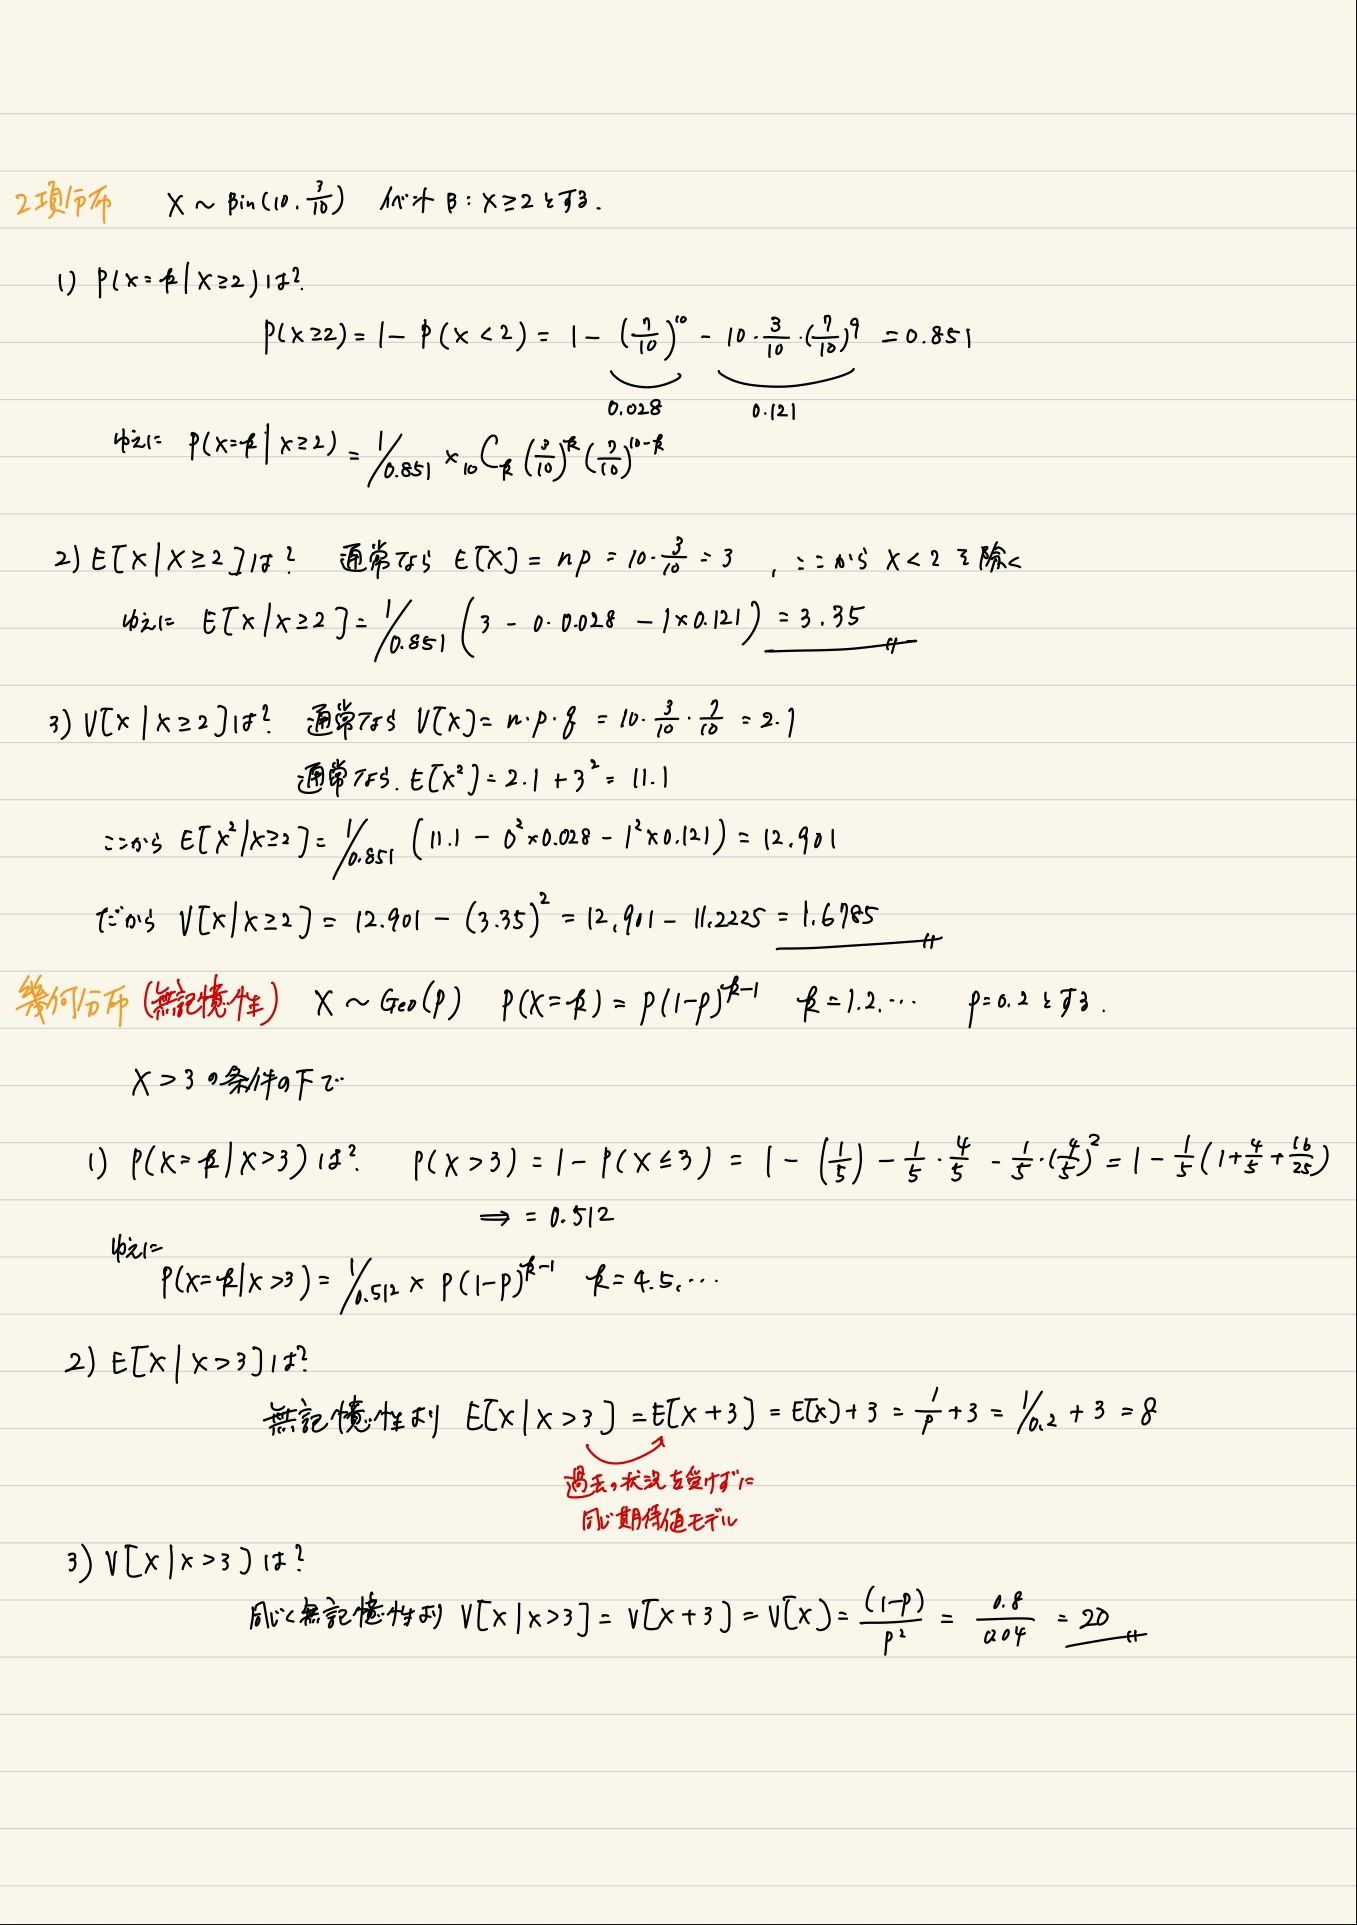 2項分布 X ~ Bin(10, 3/10) イベント B : X ≥ 2 とする.
1) P(X = k | X ≥ 2) は?
P(X ≥ 2) = 1 - P(X < 2) = 1 - (7/10)^10 - 10・3/10・(7/10)^9 = 0.851
0.028 0.121
ゆえに P(X = k | X ≥ 2) = 1/0.851 × 10Ck (3/10)^k (7/10)^10-k
2) E[X | X ≥ 2] は? 通常なら E[X] = np = 10・3/10 = 3 , ここから X < 2 を除く
ゆえに E[X | X ≥ 2] = 1/0.851 (3 - 0・0.028 - 1×0.121) = 3.35
3) V[X | X ≥ 2] は? 通常なら V[X] = n・p・q = 10・3/10・7/10 = 2.1
通常なら. E[X^2] = 2.1 + 3^2 = 11.1
ここから E[X^2 | X ≥ 2] = 1/0.851 (11.1 - 0^2×0.028 - 1^2×0.121) = 12.901
だから V[X | X ≥ 2] = 12.901 - (3.35)^2 = 12.901 - 11.2225 = 1.6785
幾何分布 (無記憶性) X ~ Geo(p) P(X = k) = p(1-p)^k-1 k = 1.2.… p = 0.2 とする.
X > 3 の条件の下で
1) P(X = k | X > 3) は? P(X > 3) = 1 - P(X ≤ 3) = 1 - (1/5) - 1/5・4/5 - 1/5・(4/5)^2 = 1 - 1/5 (1 + 4/5 + 16/25)
⇒ = 0.512
ゆえに
P(X = k | X > 3) = 1/0.512 × p(1-p)^k-1 k = 4.5.…
2) E[X | X > 3] は?
無記憶性より E[X | X > 3] = E[X + 3] = E[X] + 3 = 1/p + 3 = 1/0.2 + 3 = 8
過去の状況を受けずに
同じ期待値モデル
3) V[X | X > 3] は?
同じく無記憶性より V[X | X > 3] = V[X + 3] = V[X] = (1-p)/p^2 = 0.8/0.04 = 20